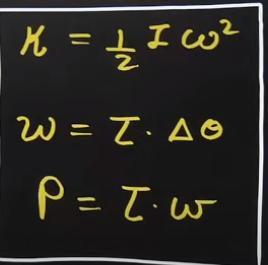 K = 1/2 I ω²
W = τ · Δθ
P = τ · ω